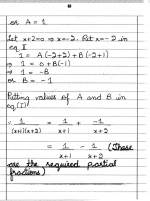 or A = 1
Let x+2=0 ⇒ x=-2. Put x=-2 in
eq II
1 = A(-2+2) + B(-2+1)
⇒ 1 = 0 + B(-1)
⇒ 1 = -B
or B = -1
Putting values of A and B in
eq (I)
∵ 1/((x+1)(x+2)) = 1/(x+1) + -1/(x+2)
= 1/(x+1) - 1/(x+2) (These
are the required partial
fractions)